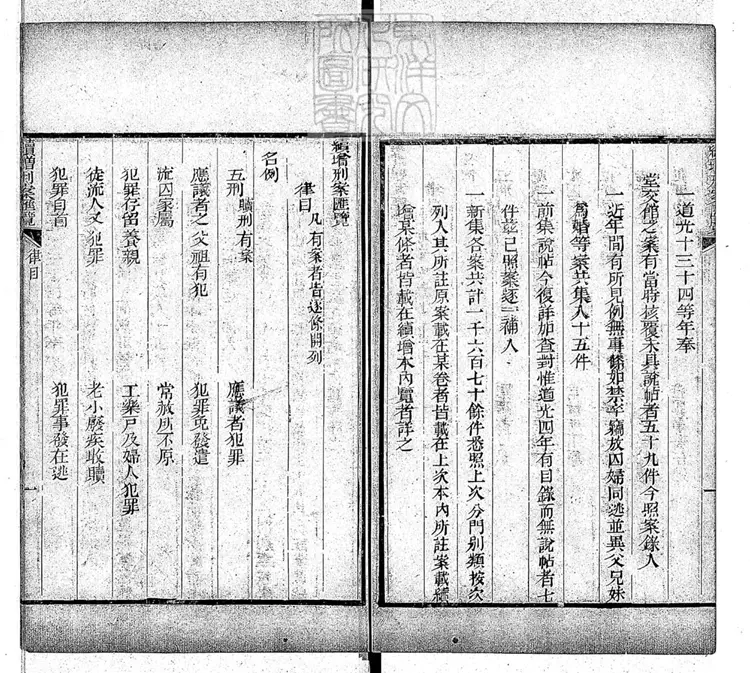 一道光十三十四等年奉
堂交館之案有當時核覆未具說帖者五十九件今照案錄入
一近年間有所見例無專條如禁卒竊放囚婦同逃並異父兄妹
為婚等案共集八十五件
一前集說帖今復詳加查對惟道光四年有目錄而無說帖者七
件茲已照案逐一補入
一新集各案共計一千六百七十餘件悉照上次分門別類按次
列入其所註原案載在某卷者皆載在上次本內所註案載續
增某條者皆載在續增本內覽者詳之
續增刑案匯覽
律目 凡有案者皆逐條開列
名例
五刑 贖刑有案 應議者犯罪
應議者之父祖有犯 犯罪免發遣
流囚家屬 常赦所不原
犯罪存留養親 工樂戶及婦人犯罪
徒流人又犯罪 老小廢疾收贖
犯罪自首 犯罪事發在逃
續增刑案匯覽 律目 一